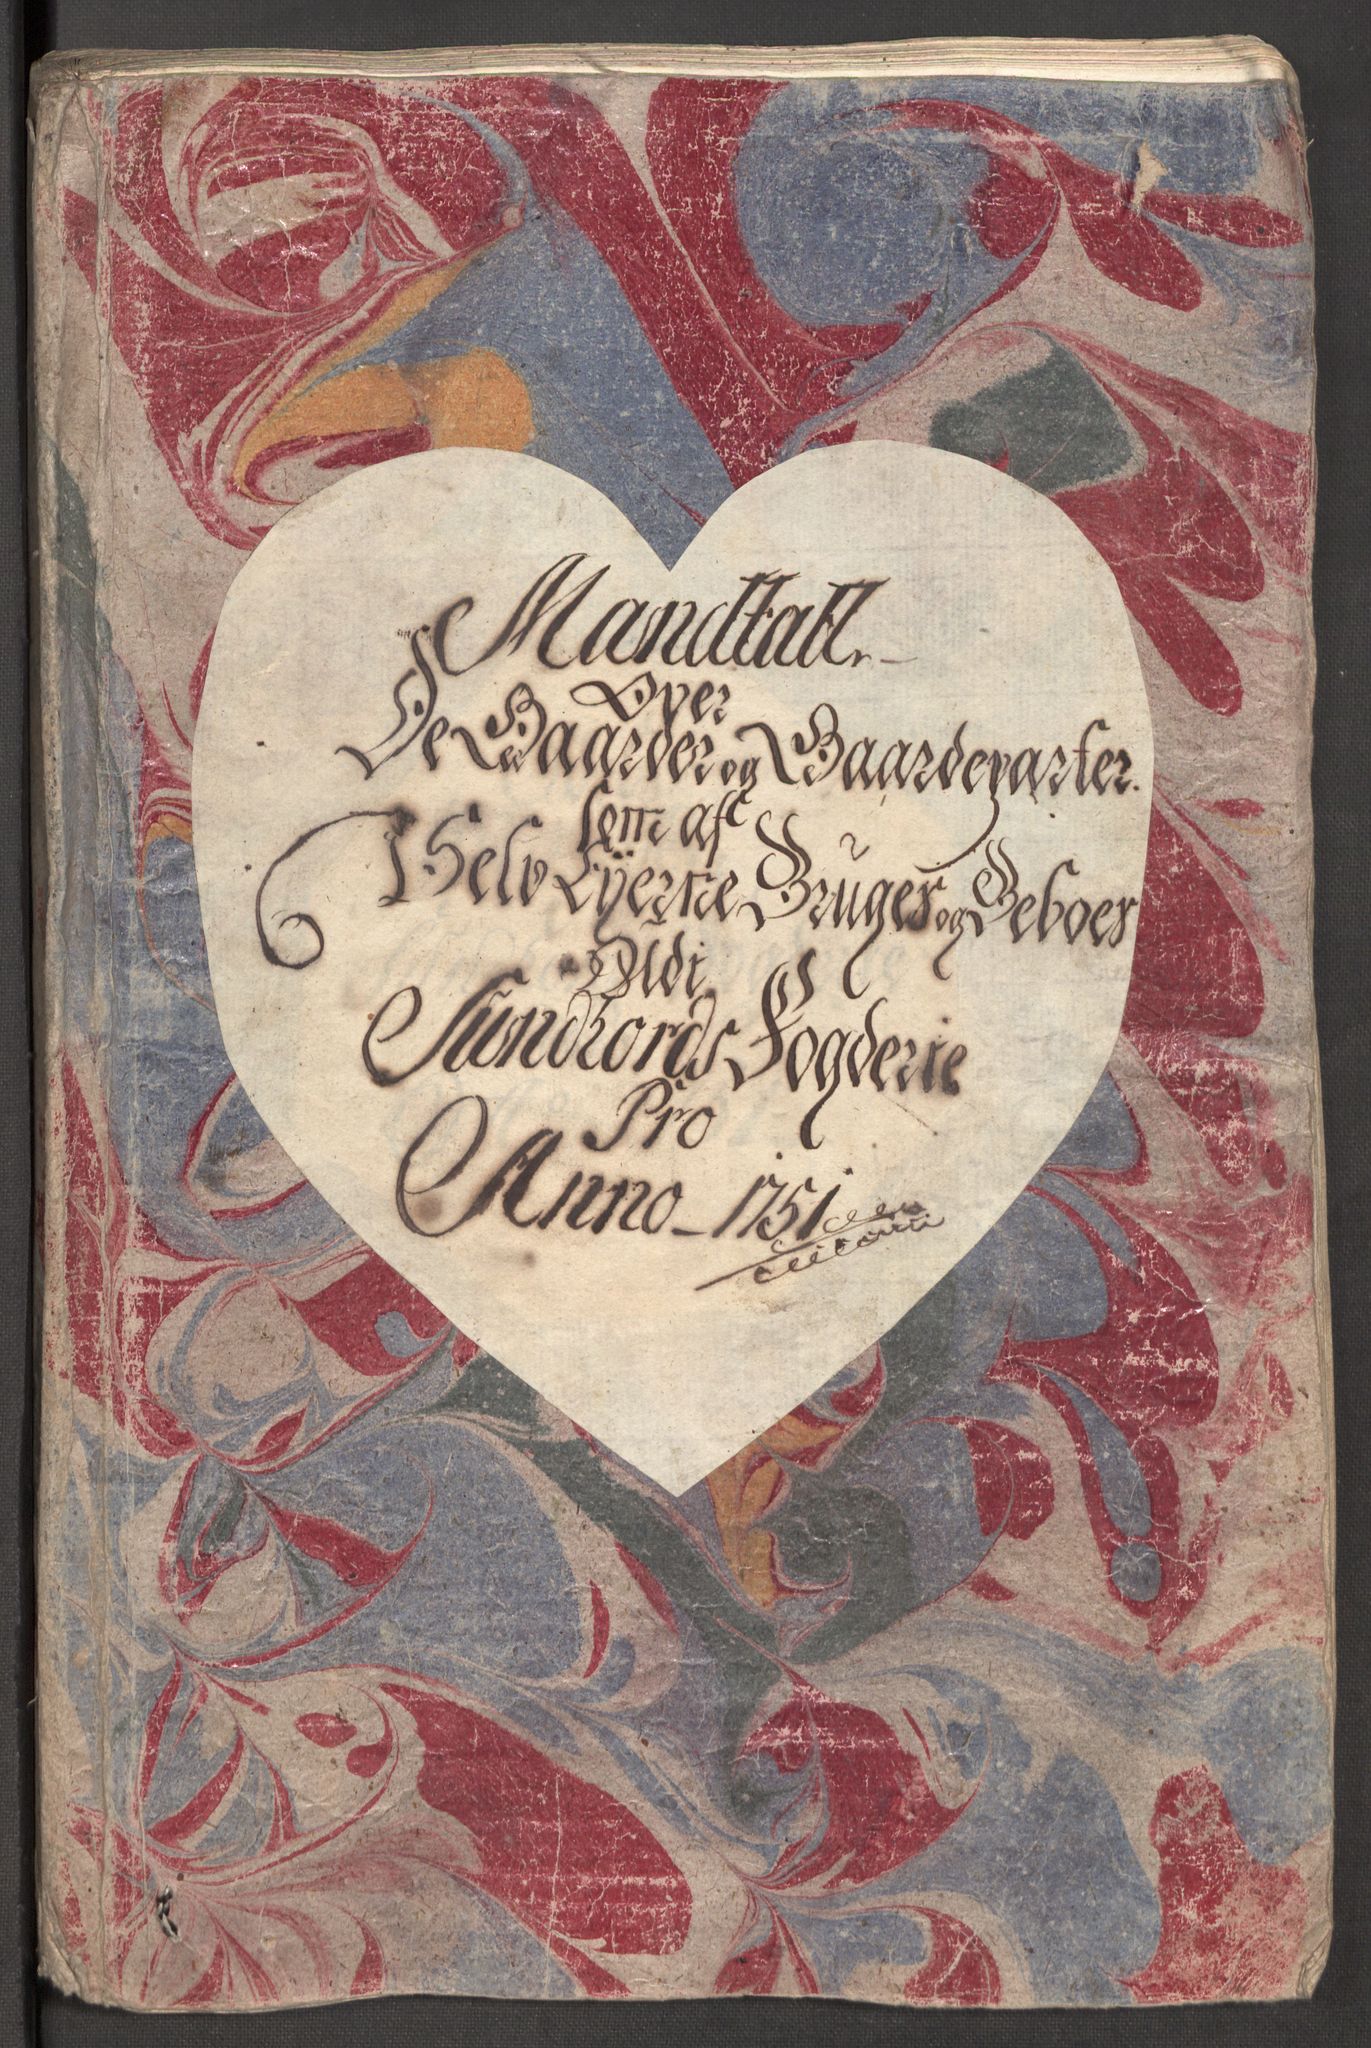 Mandtall
Over
De Gaarder og Gaardeparter
som af
Selv Eÿerne Bruges og Beboes
Udi
Sundhords Fogderie
Pro
Anno 1751